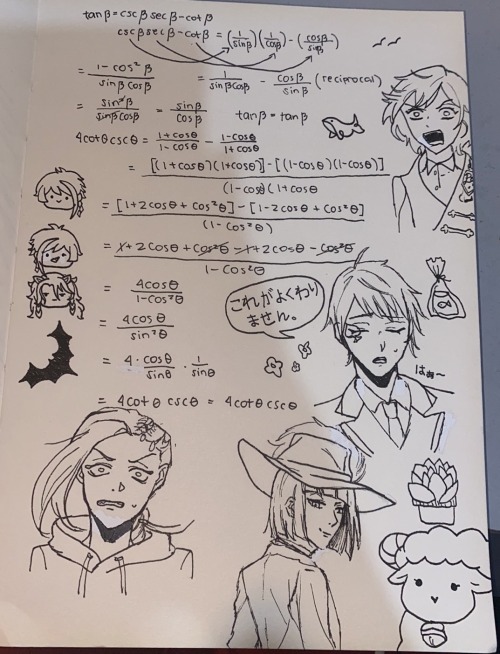 tan β = csc β sec β - cot β
csc β sec β - cot β = (1/sin β)(1/cos β) - (cos β/sin β)
= 1 - cos² β/sin β cos β = 1/sin β cos β - cos β/sin β (reciprocal)
= sin² β/sin β cos β = sin β/cos β tan β = tan β
4 cot θ csc θ = 1 + cos θ/1 - cos θ - 1 - cos θ/1 + cos θ
= [(1 + cos θ)(1 + cos θ)] - [(1 - cos θ)(1 - cos θ)]/(1 - cos θ)(1 + cos θ
= [1 + 2 cos θ + cos² θ] - [1 - 2 cos θ + cos² θ]/(1 - cos² θ)
= 1 + 2 cos θ + cos² θ - 1 + 2 cos θ - cos² θ/1 - cos² θ
= 4 cos θ/1 - cos² θ
= 4 cos θ/sin² θ
= 4 · cos θ/sin θ · 1/sin θ
= 4 cot θ csc θ = 4 cot θ csc θ
これがよくわり
ません。
はぁ〜